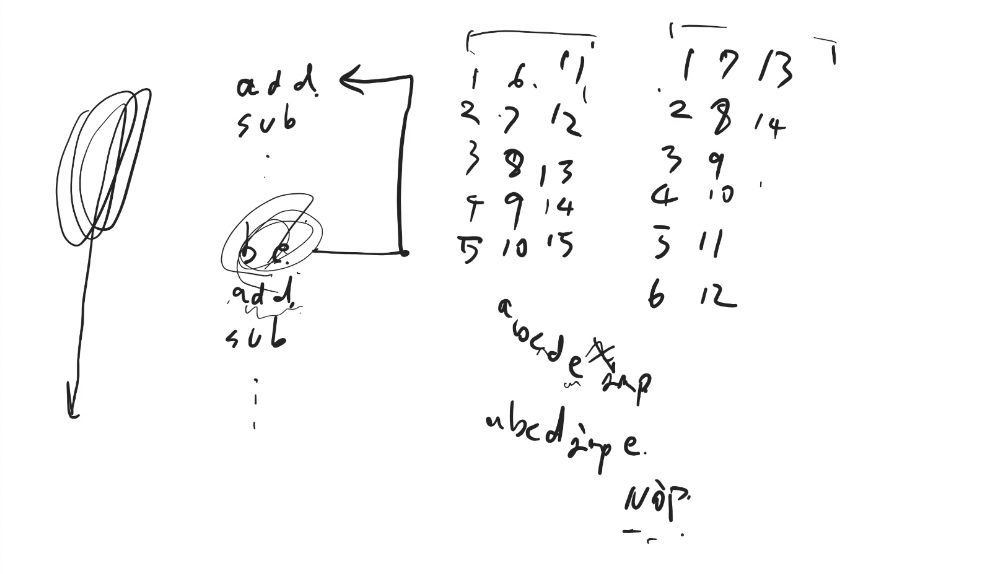 add.
sub
.
be.
add
sub
1 6. 11
2 7 12
3 8 13
4 9 14
5 10 15
1 7 13
2 8 14
3 9
4 10
5 11
6 12
abcde jmp
abcd jmp e.
NOP.